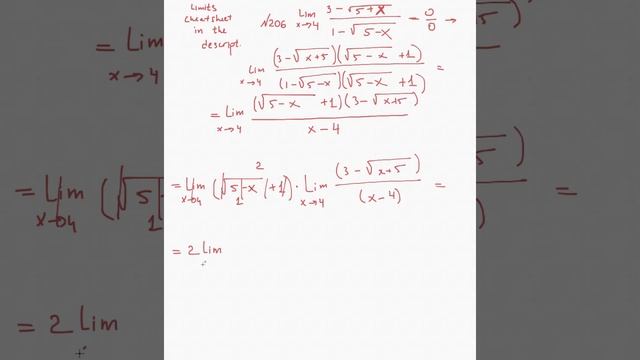 Limits
cheatsheet
in the
descript.
№206 lim x→4 (3-√(5+x))/(1-√(5-x)) = 0/0 →
lim x→4 ((3-√(x+5))(√(5-x) +1))/((1-√(5-x))(√(5-x) +1)) =
= lim x→4 ((√(5-x) +1)(3-√(x+5)))/(x-4)
= lim x→4 (√(5-x) +1) · lim x→4 (3-√(x+5))/(x-4) =
2
1 1
= 2 lim
= Lim
x→4
= Lim
x→4
(√5
1
=
= 2 Lim